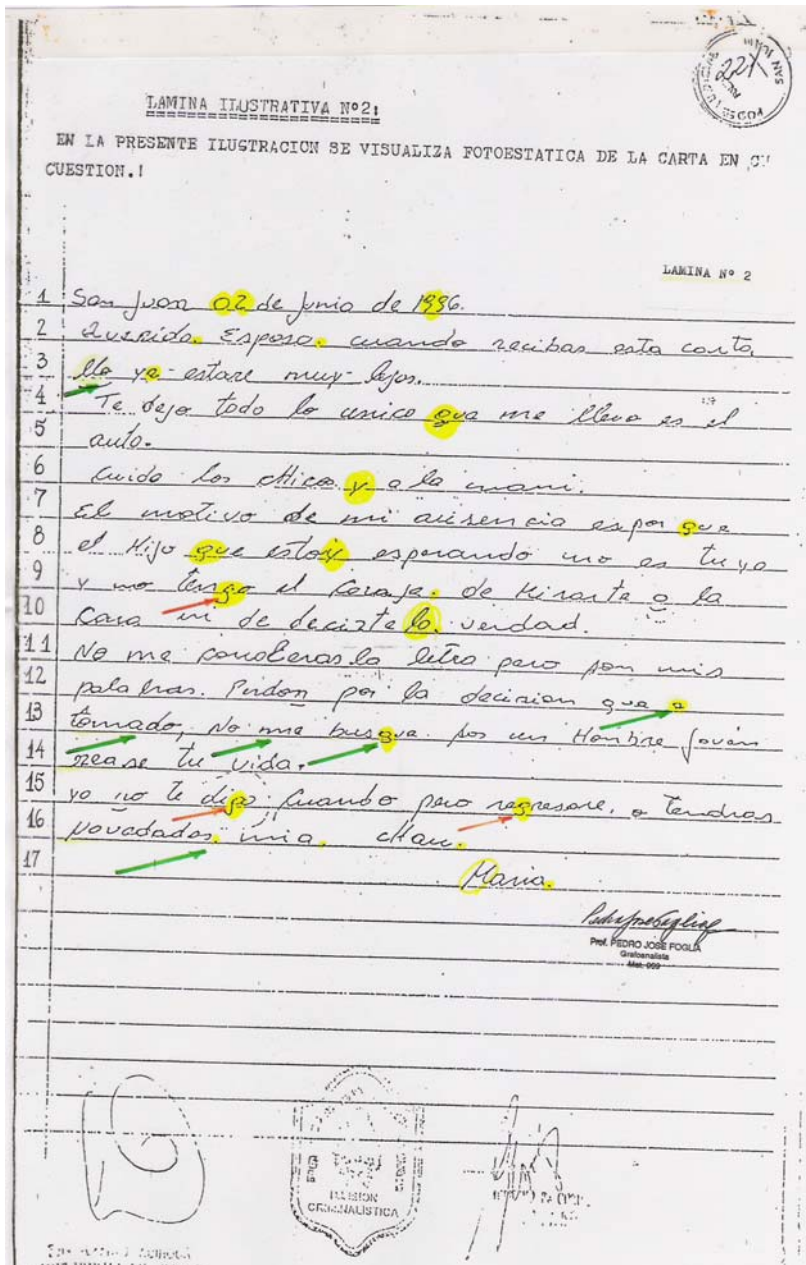 221
LAMINA ILUSTRATIVA Nº2:
EN LA PRESENTE ILUSTRACION SE VISUALIZA FOTOESTATICA DE LA CARTA EN
CUESTION.!
LAMINA Nº 2
1 San Juan 02 de Junio de 1996.
2 Querido. Esposo. cuando recibas esta carta
3 llo ya estare muy lejos.
4 Te dejo todo lo unico que me llevo es el
5 auto.
6 Cuida los cHicos y a la mami.
7 El motivo de mi ausencia es por que
8 el Hijo que estoy esperando no es tuyo
9 y no tengo el coraje. de Mirarte a la
10 Cara ni de decirte la verdad.
11 No me conoceras la letra pero son mis
12 palabras. Perdon por la decision que a
13 tomado, No me busque. sos un Hombre Joven
14 rease tu vida.
15 yo no te digo cuando pero regresare, o tendras
16 Novedades. mia. cHau.
17 Maria.
Prof. PEDRO JOSE FOGLIA
Grafoanalista
Mat. 009
DIVISION
CRIMINALISTICA